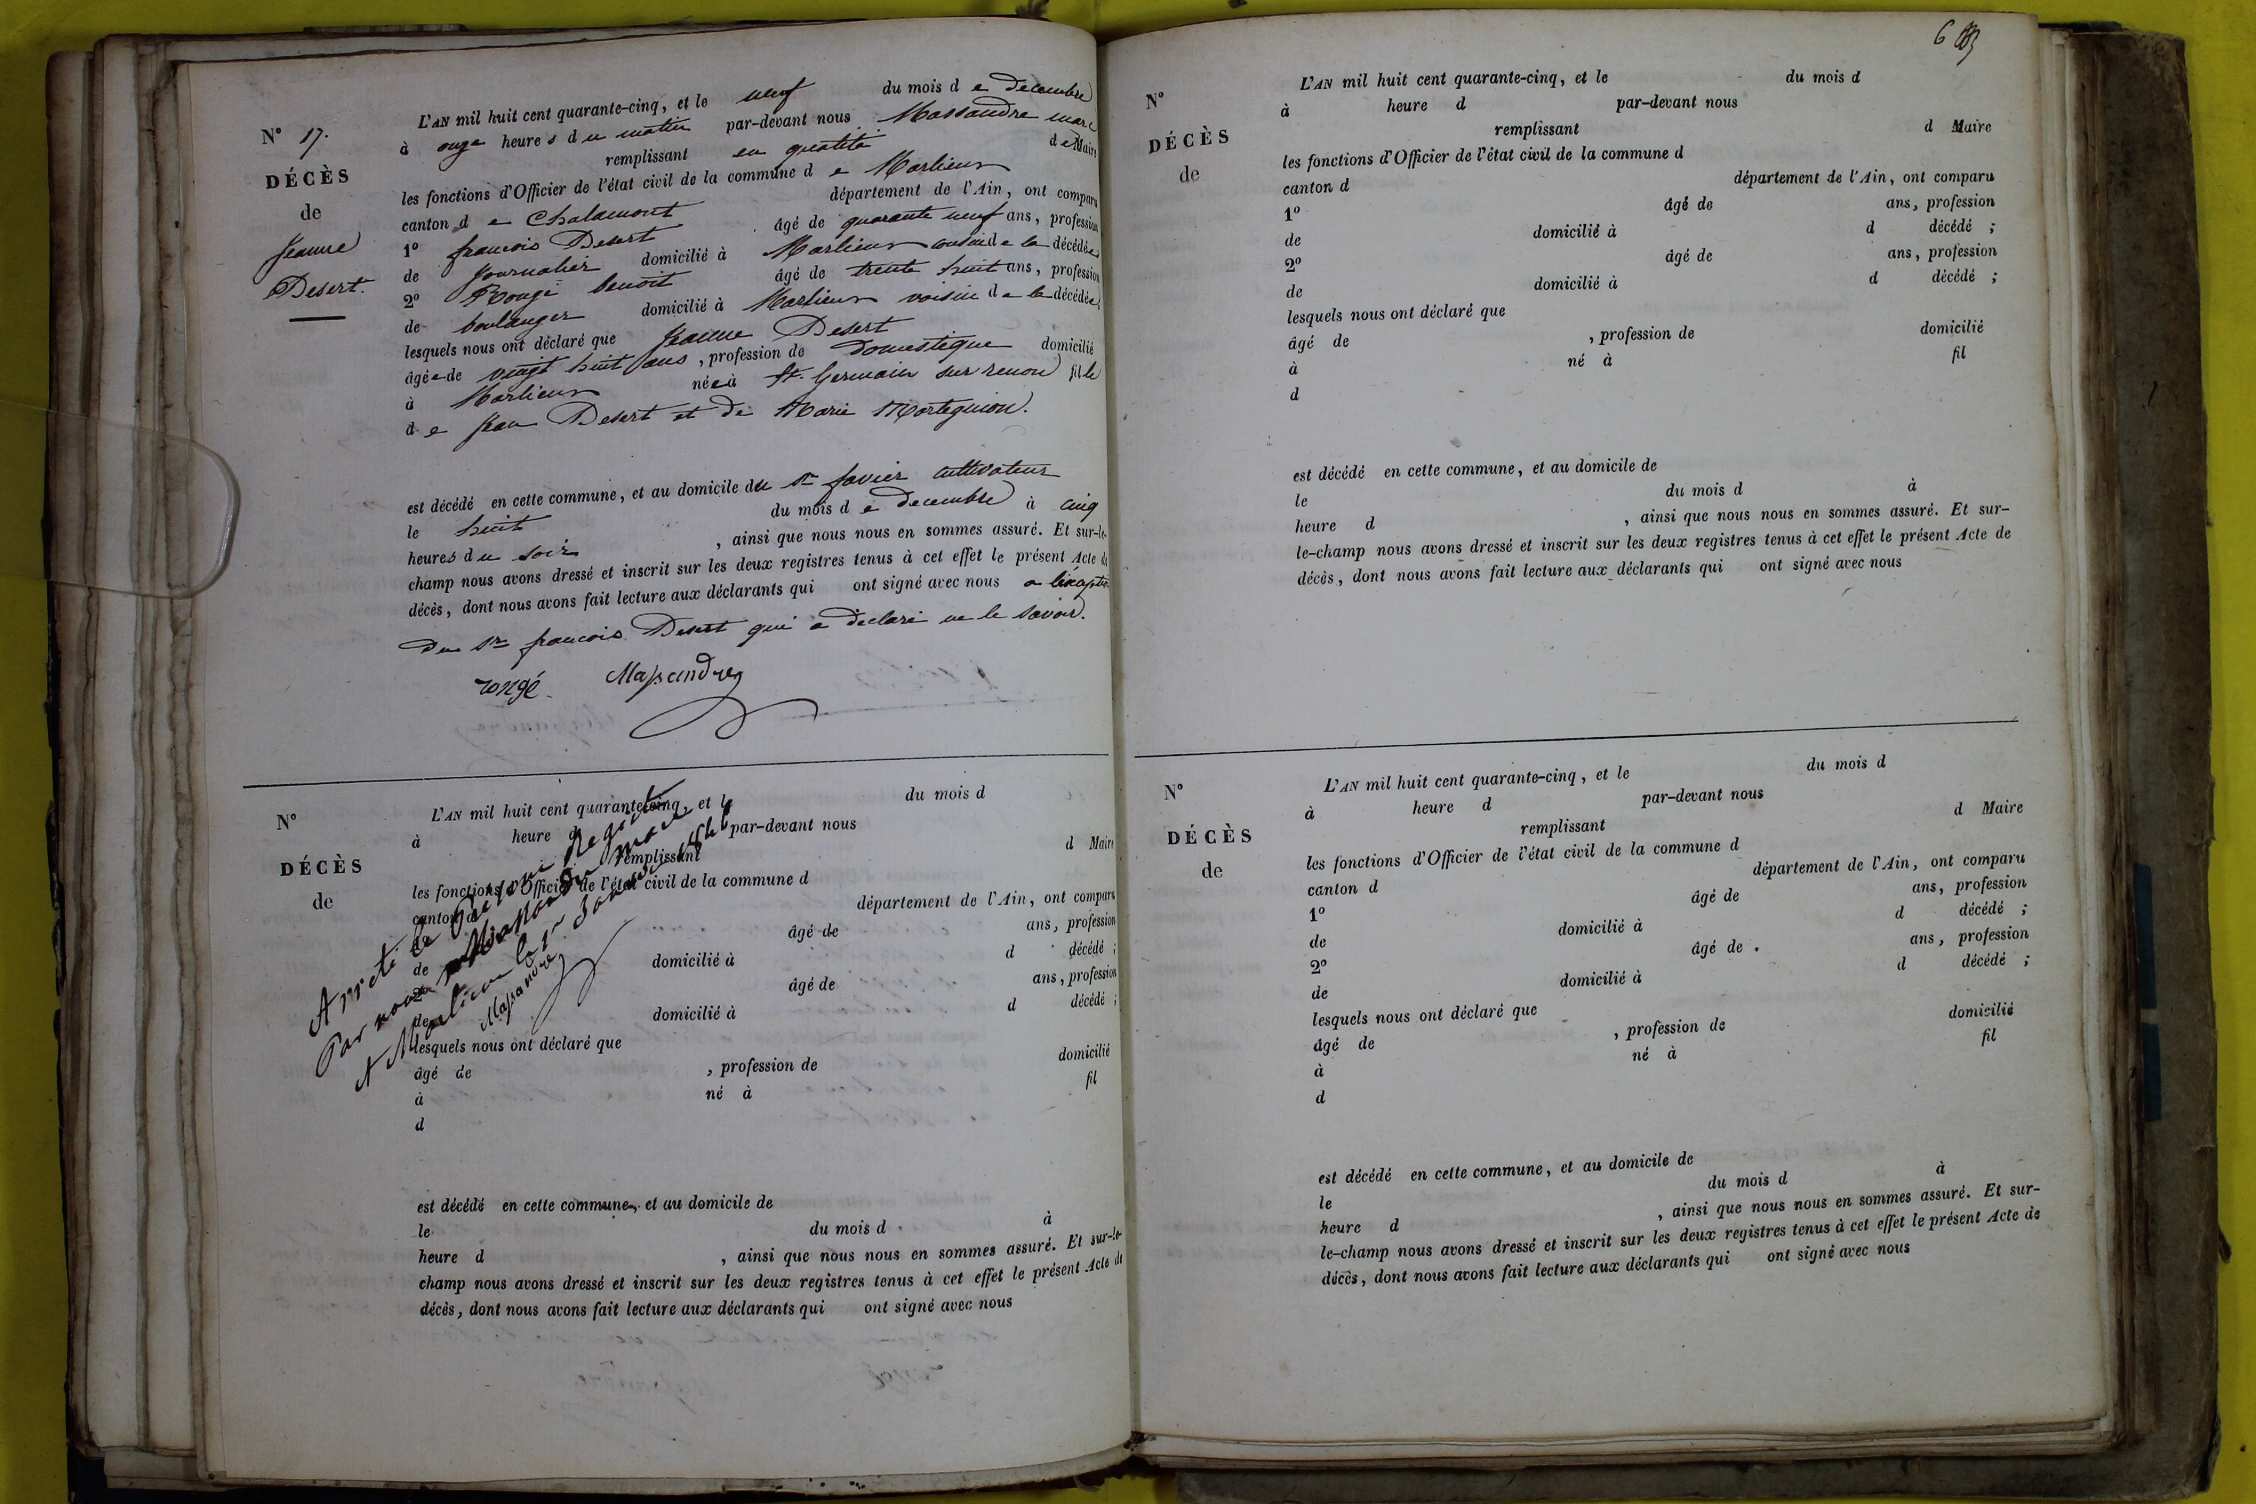 N° 17.
DÉCÈS
de
Jeanne
Desert.
L'AN mil huit cent quarante-cinq, et le neuf du mois de decembre
à onze heures du matin par-devant nous Massandre marc
remplissant en qualité de Maire
les fonctions d'Officier de l'état civil de la commune de Marlieux
canton de Chalamont département de l'Ain, ont comparu
1° francois Desert âgé de quarante neuf ans, profession
de Journalier domicilié à Marlieux cousin de la décédée
2° Rougé benoit âgé de trente huit ans, profession
de boulanger domicilié à Marlieux voisin de la décédée;
lesquels nous ont déclaré que Jeanne Desert
âgée de vingt huit ans, profession de domestique domicilié
à Marlieux née à St. Germain sur renon fille
de Jean Desert et de Marie Morteguion.
est décédé en cette commune, et au domicile du Sr favier cultivateur
le huit du mois de decembre à cinq
heures du soir, ainsi que nous nous en sommes assuré. Et sur-le-
champ nous avons dressé et inscrit sur les deux registres tenus à cet effet le présent Acte de
décès, dont nous avons fait lecture aux déclarants qui ont signé avec nous a l'exeption
du Sr francois Desert qui a déclaré ne le savoir.
rongé Massandre
N°
DÉCÈS
de
L'AN mil huit cent quarante-cinq, et le du mois d
à heure d par-devant nous
remplissant d Maire
les fonctions d'Officier de l'état civil de la commune d
canton d département de l'Ain, ont comparu
1° âgé de ans, profession
de domicilié à d décédé ;
2° âgé de ans, profession
de domicilié à d décédé ;
lesquels nous ont déclaré que
âgé de , profession de domicilié
à né à fil
d
Arreté le présent Registre
Par nous Massandre maire
A Marlieux le 1er Janvier 1846
Massandre
est décédé en cette commune, et au domicile de
le du mois d à
heure d , ainsi que nous nous en sommes assuré. Et sur-le-
champ nous avons dressé et inscrit sur les deux registres tenus à cet effet le présent Acte de
décès, dont nous avons fait lecture aux déclarants qui ont signé avec nous
6
N°
DÉCÈS
de
L'AN mil huit cent quarante-cinq, et le du mois d
à heure d par-devant nous
remplissant d Maire
les fonctions d'Officier de l'état civil de la commune d
canton d département de l'Ain, ont comparu
1° âgé de ans, profession
de domicilié à d décédé ;
2° âgé de ans, profession
de domicilié à d décédé ;
lesquels nous ont déclaré que
âgé de , profession de domicilié
à né à fil
d
est décédé en cette commune, et au domicile de
le du mois d à
heure d , ainsi que nous nous en sommes assuré. Et sur-
le-champ nous avons dressé et inscrit sur les deux registres tenus à cet effet le présent Acte de
décès, dont nous avons fait lecture aux déclarants qui ont signé avec nous
N°
DÉCÈS
de
L'AN mil huit cent quarante-cinq, et le du mois d
à heure d par-devant nous
remplissant d Maire
les fonctions d'Officier de l'état civil de la commune d
canton d département de l'Ain, ont comparu
1° âgé de ans, profession
de domicilié à d décédé ;
2° âgé de ans, profession
de domicilié à d décédé ;
lesquels nous ont déclaré que
âgé de , profession de domicilié
à né à fil
d
est décédé en cette commune, et au domicile de
le du mois d à
heure d , ainsi que nous nous en sommes assuré. Et sur-
le-champ nous avons dressé et inscrit sur les deux registres tenus à cet effet le présent Acte de
décès, dont nous avons fait lecture aux déclarants qui ont signé avec nous